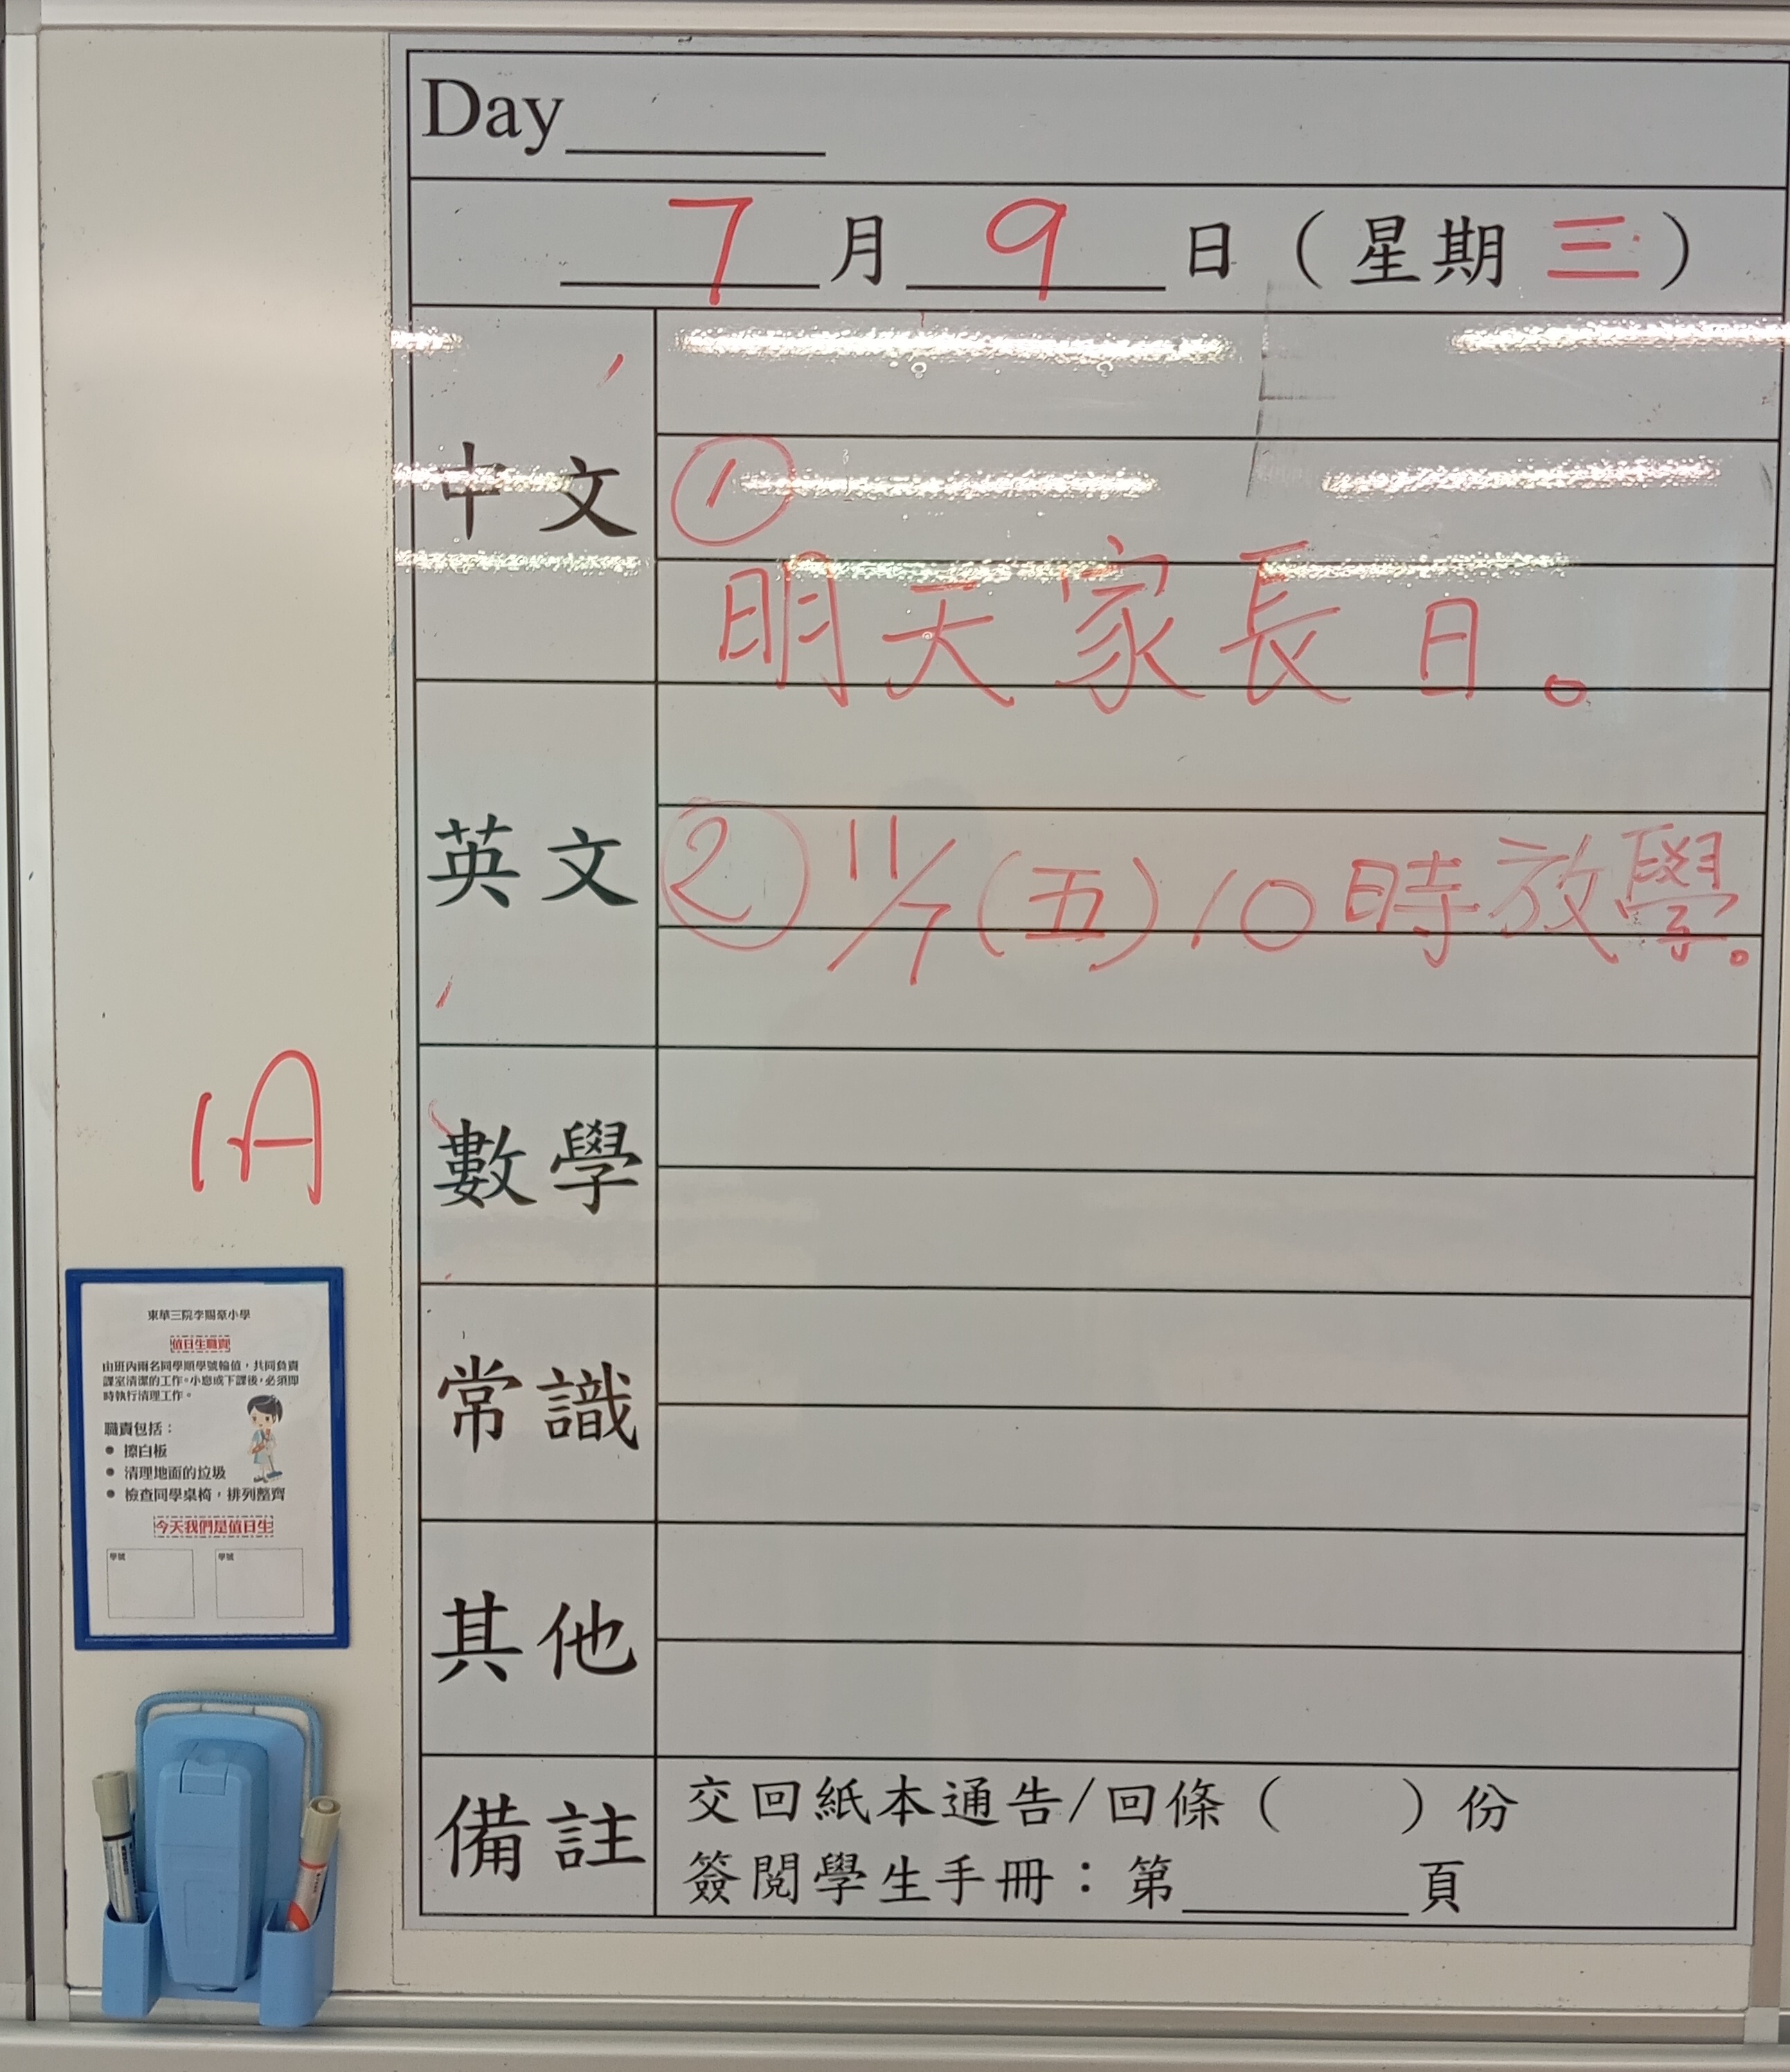 Day
7月9日（星期三）
中文
①
明天家長日。
英文
② 11/7(五)10時放學。
數學
常識
其他
備註
交回紙本通告/回條（　　）份
簽閱學生手冊：第＿＿＿頁
1A
東華三院李賜豪小學
值日生職責
由班內兩名同學順學號輪值，共同負責
課室清潔的工作。小息或下課後，必須即
時執行清理工作。
職責包括：
● 擦白板
● 清理地面的垃圾
● 檢查同學桌椅，排列整齊
今天我們是值日生
學號 學號